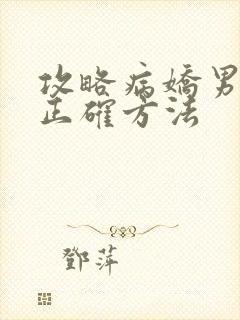 攻略病嬌男
正確方法
鄧萍